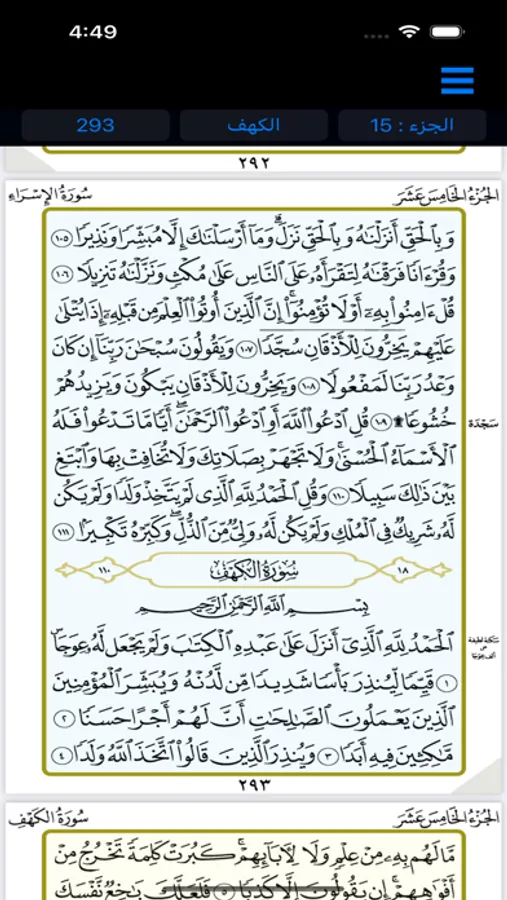 4:49
الجزء : 15 الكهف 293
٢٩٢
الجُزْءُ الخَامِسَ عَشَرَ سُورَةُ الإِسْرَاءِ
وَبِٱلْحَقِّ أَنزَلْنَٰهُ وَبِٱلْحَقِّ نَزَلَۗ وَمَآ أَرْسَلْنَٰكَ إِلَّا مُبَشِّرًا وَنَذِيرًا ١٠٥
وَقُرْءَانًا فَرَقْنَٰهُ لِتَقْرَأَهُۥ عَلَى ٱلنَّاسِ عَلَىٰ مُكْثٍ وَنَزَّلْنَٰهُ تَنزِيلًا ١٠٦
قُلْ ءَامِنُوا۟ بِهِۦٓ أَوْ لَا تُؤْمِنُوٓا۟ۚ إِنَّ ٱلَّذِينَ أُوتُوا۟ ٱلْعِلْمَ مِن قَبْلِهِۦٓ إِذَا يُتْلَىٰ
عَلَيْهِمْ يَخِرُّونَ لِلْأَذْقَانِ سُجَّدًا ١٠٧ وَيَقُولُونَ سُبْحَٰنَ رَبِّنَآ إِن كَانَ
وَعْدُ رَبِّنَا لَمَفْعُولًا ١٠٨ وَيَخِرُّونَ لِلْأَذْقَانِ يَبْكُونَ وَيَزِيدُهُمْ
خُشُوعًا۩ ١٠٩ قُلِ ٱدْعُوا۟ ٱللَّهَ أَوِ ٱدْعُوا۟ ٱلرَّحْمَٰنَۖ أَيًّا مَّا تَدْعُوا۟ فَلَهُ
سَجْدَة
ٱلْأَسْمَآءُ ٱلْحُسْنَىٰۚ وَلَا تَجْهَرْ بِصَلَاتِكَ وَلَا تُخَافِتْ بِهَا وَٱبْتَغِ
بَيْنَ ذَٰلِكَ سَبِيلًا ١١٠ وَقُلِ ٱلْحَمْدُ لِلَّهِ ٱلَّذِى لَمْ يَتَّخِذْ وَلَدًا وَلَمْ يَكُن
لَّهُۥ شَرِيكٌ فِى ٱلْمُلْكِ وَلَمْ يَكُن لَّهُۥ وَلِىٌّ مِّنَ ٱلذُّلِّۖ وَكَبِّرْهُ تَكْبِيرًۢا ١١١
١٨ سُورَةُ الكَهْفِ ١١٠
بِسْمِ ٱللَّهِ ٱلرَّحْمَٰنِ ٱلرَّحِيمِ
ٱلْحَمْدُ لِلَّهِ ٱلَّذِىٓ أَنزَلَ عَلَىٰ عَبْدِهِ ٱلْكِتَٰبَ وَلَمْ يَجْعَل لَّهُۥ عِوَجَاۜ
سَكتة لطيفة
على
ألف عِوَجَا
١ قَيِّمًا لِّيُنذِرَ بَأْسًا شَدِيدًا مِّن لَّدُنْهُ وَيُبَشِّرَ ٱلْمُؤْمِنِينَ
ٱلَّذِينَ يَعْمَلُونَ ٱلصَّٰلِحَٰتِ أَنَّ لَهُمْ أَجْرًا حَسَنًا ٢
مَّٰكِثِينَ فِيهِ أَبَدًا ٣ وَيُنذِرَ ٱلَّذِينَ قَالُوا۟ ٱتَّخَذَ ٱللَّهُ وَلَدًا ٤
٢٩٣
الجُزْءُ الخَامِسَ عَشَرَ سُورَةُ الكَهْفِ
مَّا لَهُم بِهِۦ مِنْ عِلْمٍ وَلَا لِءَابَآئِهِمْۚ كَبُرَتْ كَلِمَةً تَخْرُجُ مِنْ
أَفْوَٰهِهِمْۚ إِن يَقُولُونَ إِلَّا كَذِبًا ٥ فَلَعَلَّكَ بَٰخِعٌ نَّفْسَكَ